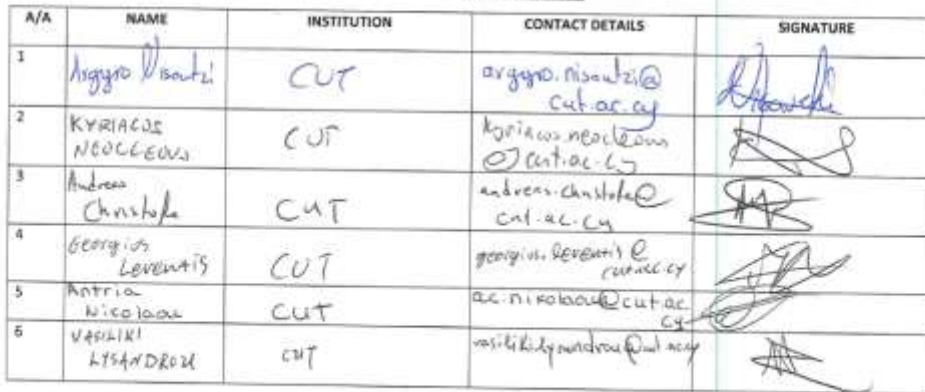 A/A NAME INSTITUTION CONTACT DETAILS SIGNATURE
1 Argyro Nisoutzi CUT argyro.nisoutzi@
cut.ac.cy
2 KYRIACOS
NEOCLEOUS CUT kyriacos.neocleous
@cut.ac.cy
3 Andreas
Christofe CUT andreas.christofe@
cut.ac.cy
4 Georgios
Leventis CUT georgios.leventis@
cut.ac.cy
5 Antria
Nicolaou CUT ac.nikolaou@cut.ac
cy
6 VASILIKI
LYSANDROU CUT vasiliki.lysandrou@cut.ac.cy